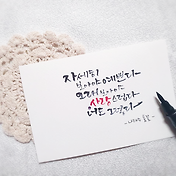 자세히
보아야 예쁘다
오래 보아야
사랑스럽다
너도 그렇다
- 나태주 풀꽃 -